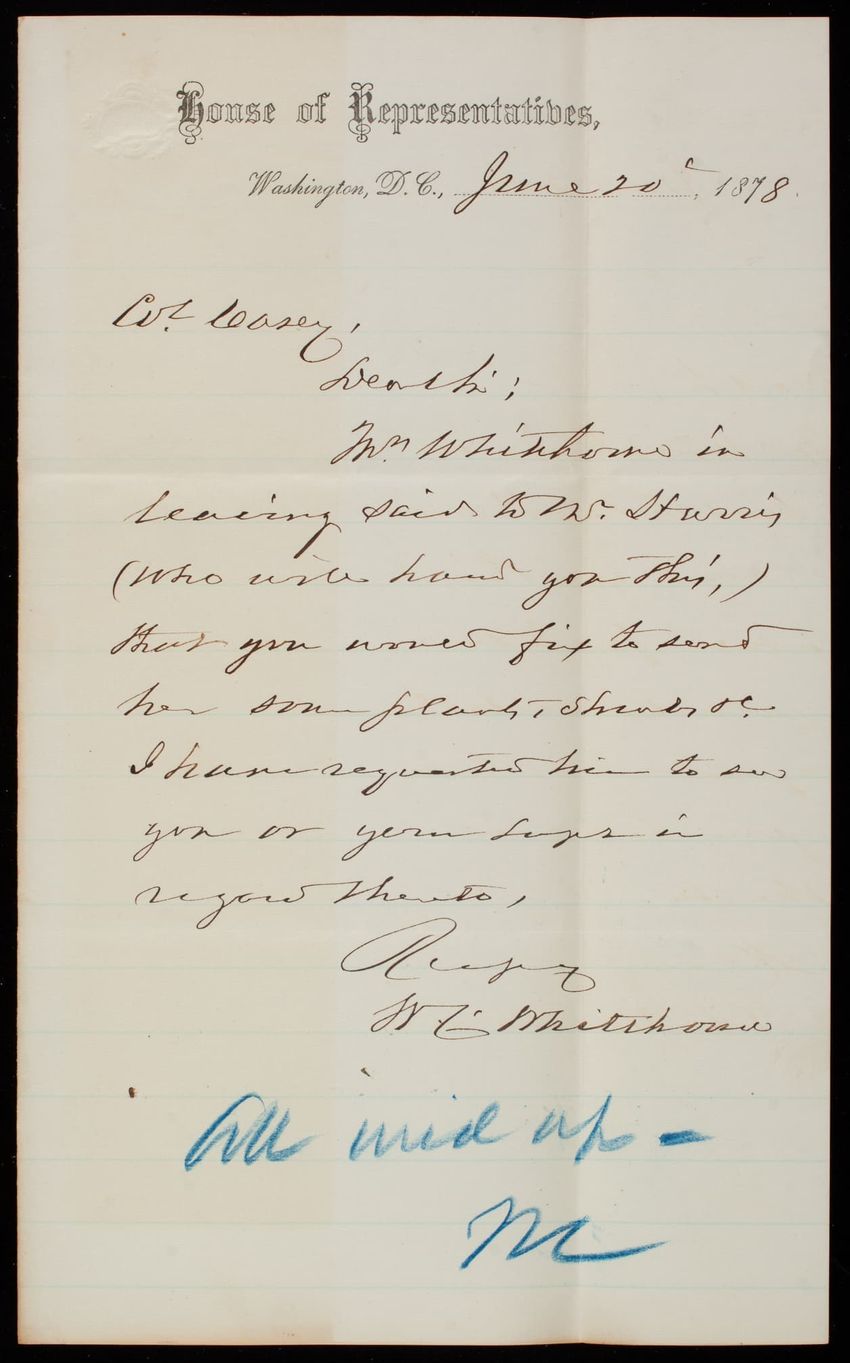 House of Representatives,
Washington, D.C., June 20", 1878.
Col Casey,
Dear Sir;
Mrs Whitthorne in
leaving said to Mr. Harris
(who will hand you this,)
that you would fix to send
her some plants, Shrubs &c.
I have requested him to see
you or your Supr in
regard thereto,
Respy
W C Whitthorne
All up -